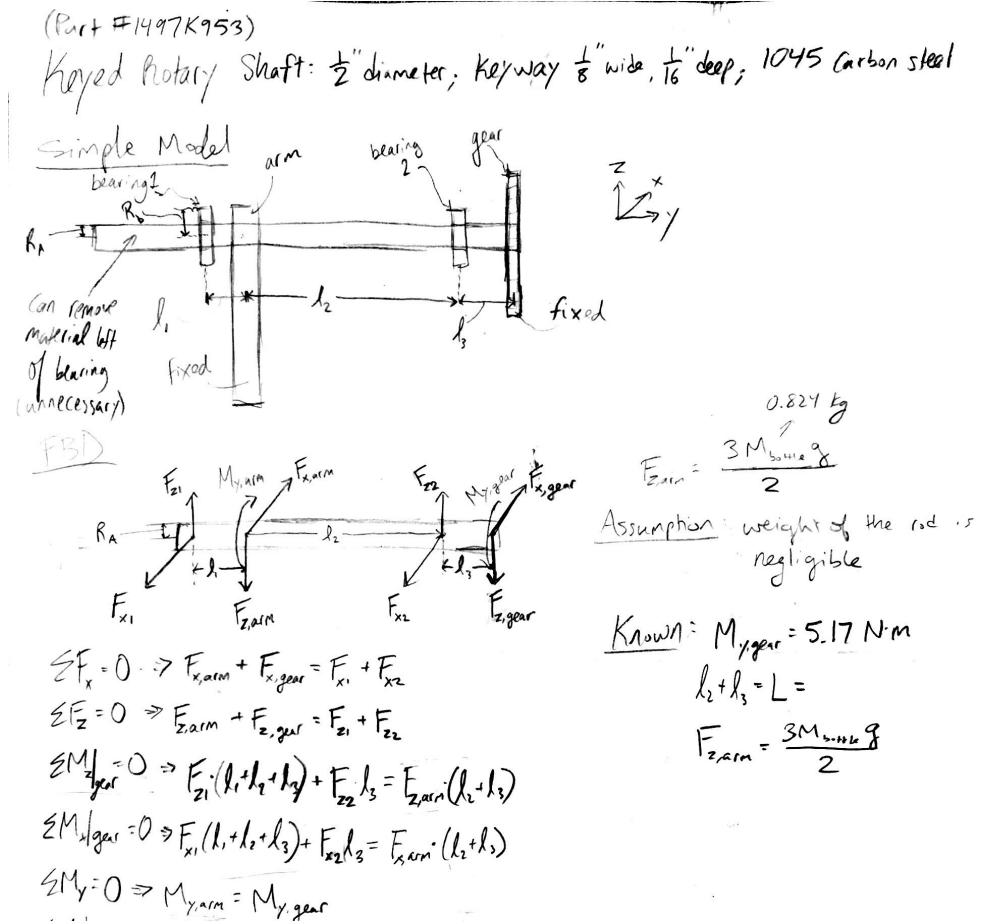 (Part #1497K953)
Keyed Rotary Shaft: 1/2" diameter; Keyway 1/8" wide, 1/16" deep; 1045 Carbon steel
Simple Model
bearing 1
arm
bearing 2
gear
R_b
R_A
z
x
y
Can remove material left of bearing (unnecessary)
l_1
l_2
l_3
fixed
fixed
FBD
F_z1
M_y,arm
F_x,arm
F_z2
M_y,gear
F_x,gear
R_A
l_1
l_2
l_3
F_x1
F_z,arm
F_x2
F_z,gear
0.824 kg
F_z,arm = 3M_bottle g / 2
Assumption: weight of the rod is negligible
Known: M_y,gear = 5.17 N·m
l_2 + l_3 = L =
F_z,arm = 3M_bottle g / 2
ΣF_x = 0 ⇒ F_x,arm + F_x,gear = F_x1 + F_x2
ΣF_z = 0 ⇒ F_z,arm + F_z,gear = F_z1 + F_z2
ΣM_z|gear = 0 ⇒ F_z1·(l_1+l_2+l_3) + F_z2 l_3 = F_z,arm·(l_2+l_3)
ΣM_x|gear = 0 ⇒ F_x1(l_1+l_2+l_3) + F_x2 l_3 = F_x,arm·(l_2+l_3)
ΣM_y = 0 ⇒ M_y,arm = M_y,gear